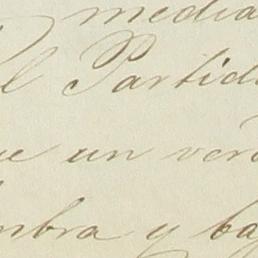 media
el Partid
ue un ver
mbra y ba